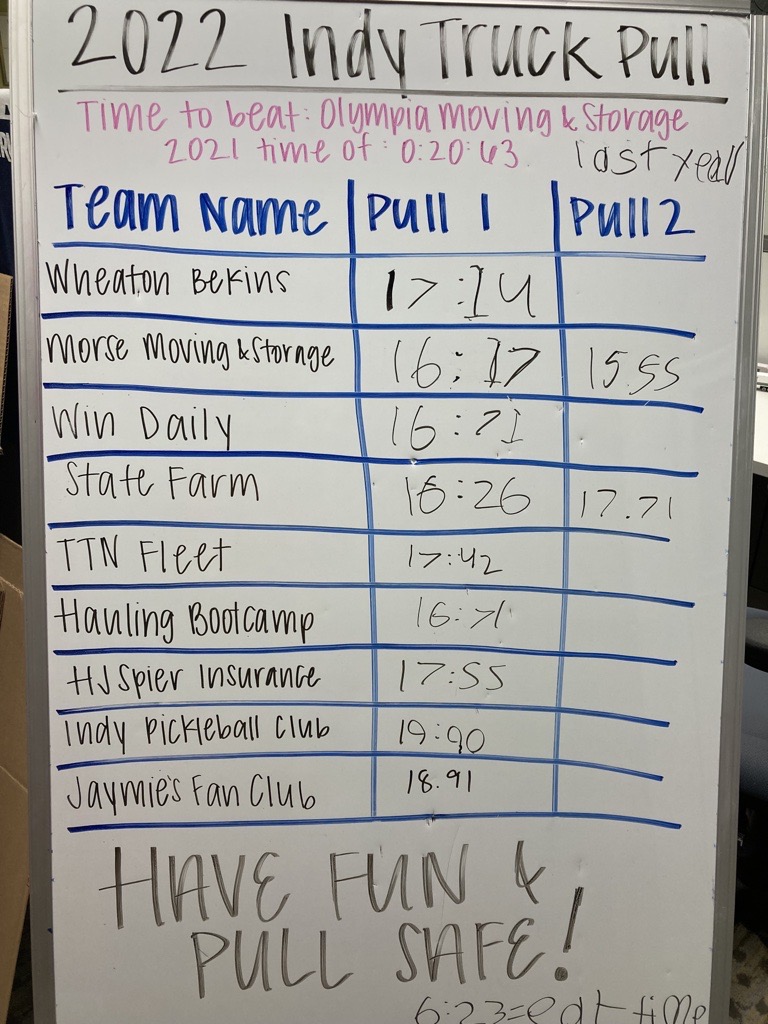 2022 Indy Truck Pull
Time to beat: Olympia Moving & Storage
2021 time of: 0:20:43 last year
Team Name Pull 1 Pull 2
Wheaton Bekins 17:14
Morse Moving & Storage 16:17 15.55
Win Daily 16:71
State Farm 16:26 17.71
TTN Fleet 17:42
Hauling Bootcamp 16:71
HJ Spier Insurance 17:55
Indy Pickleball Club 19:90
Jaymie's Fan Club 18.91
HAVE FUN &
PULL SAFE!
6:23=eat time